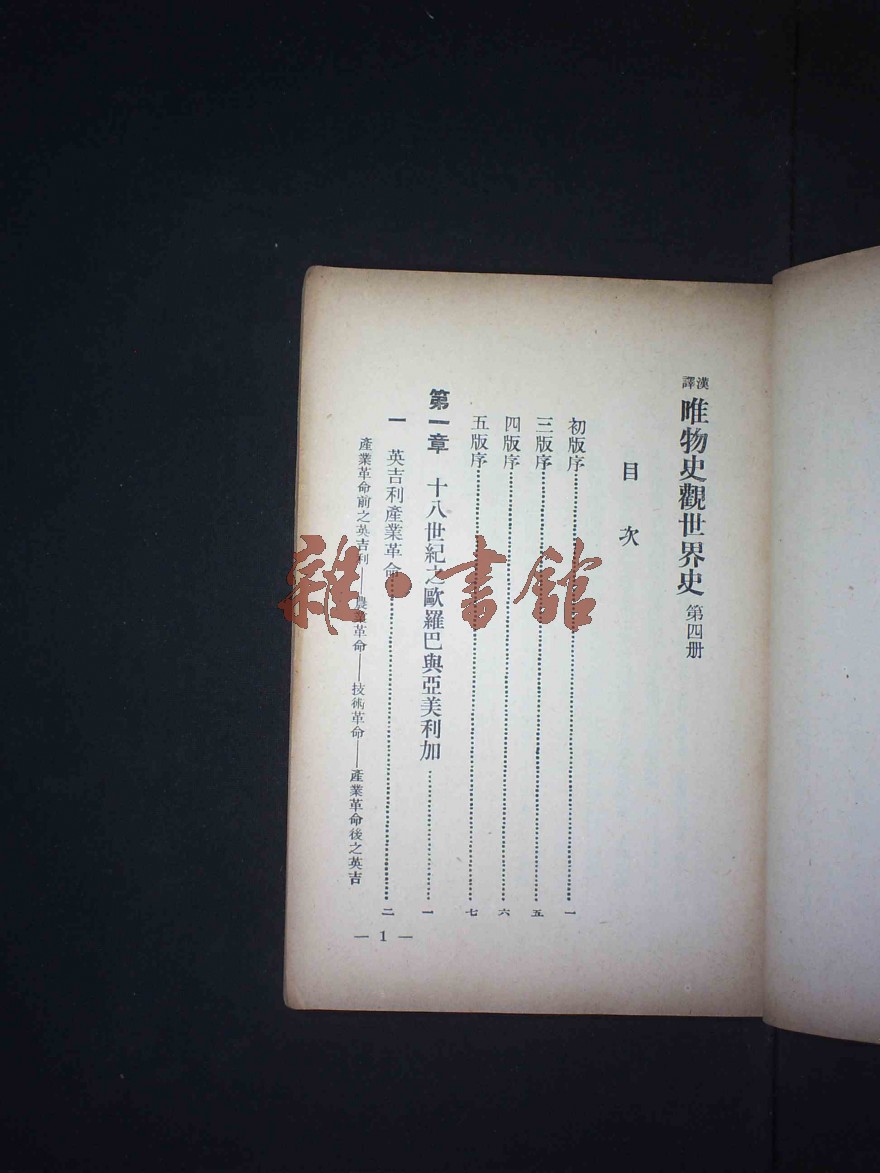 漢譯 唯物史觀世界史 第四册
目次
初版序 一
三版序 五
四版序 六
五版序 七
第一章 十八世紀之歐羅巴與亞美利加 一
一 英吉利產業革命 二
產業革命前之英吉利——農業革命——技術革命——產業革命後之英吉
— 1 —
雜·書館